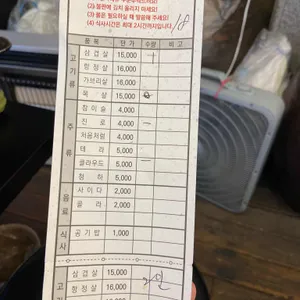 (2) 불판에 김치 올리지 마세요!
(3) 봉은 필요하실 때 말씀해 주세요!
(4) 식사시간은 최대 2시간까지입니다.
18
품목 단가 수량 비고
고기류
삼겹살 15,000 一
항정살 16,000
가브리살 16,000
목살 15,000
주류
참이슬 4,000
진로 4,000 一
처음처럼 4,000
테라 5,000
클라우드 5,000 一
청하 5,000
음료
사이다 2,000
콜라 2,000
식사
공기밥 1,000
삼겹살 15,000
항정살 16,000